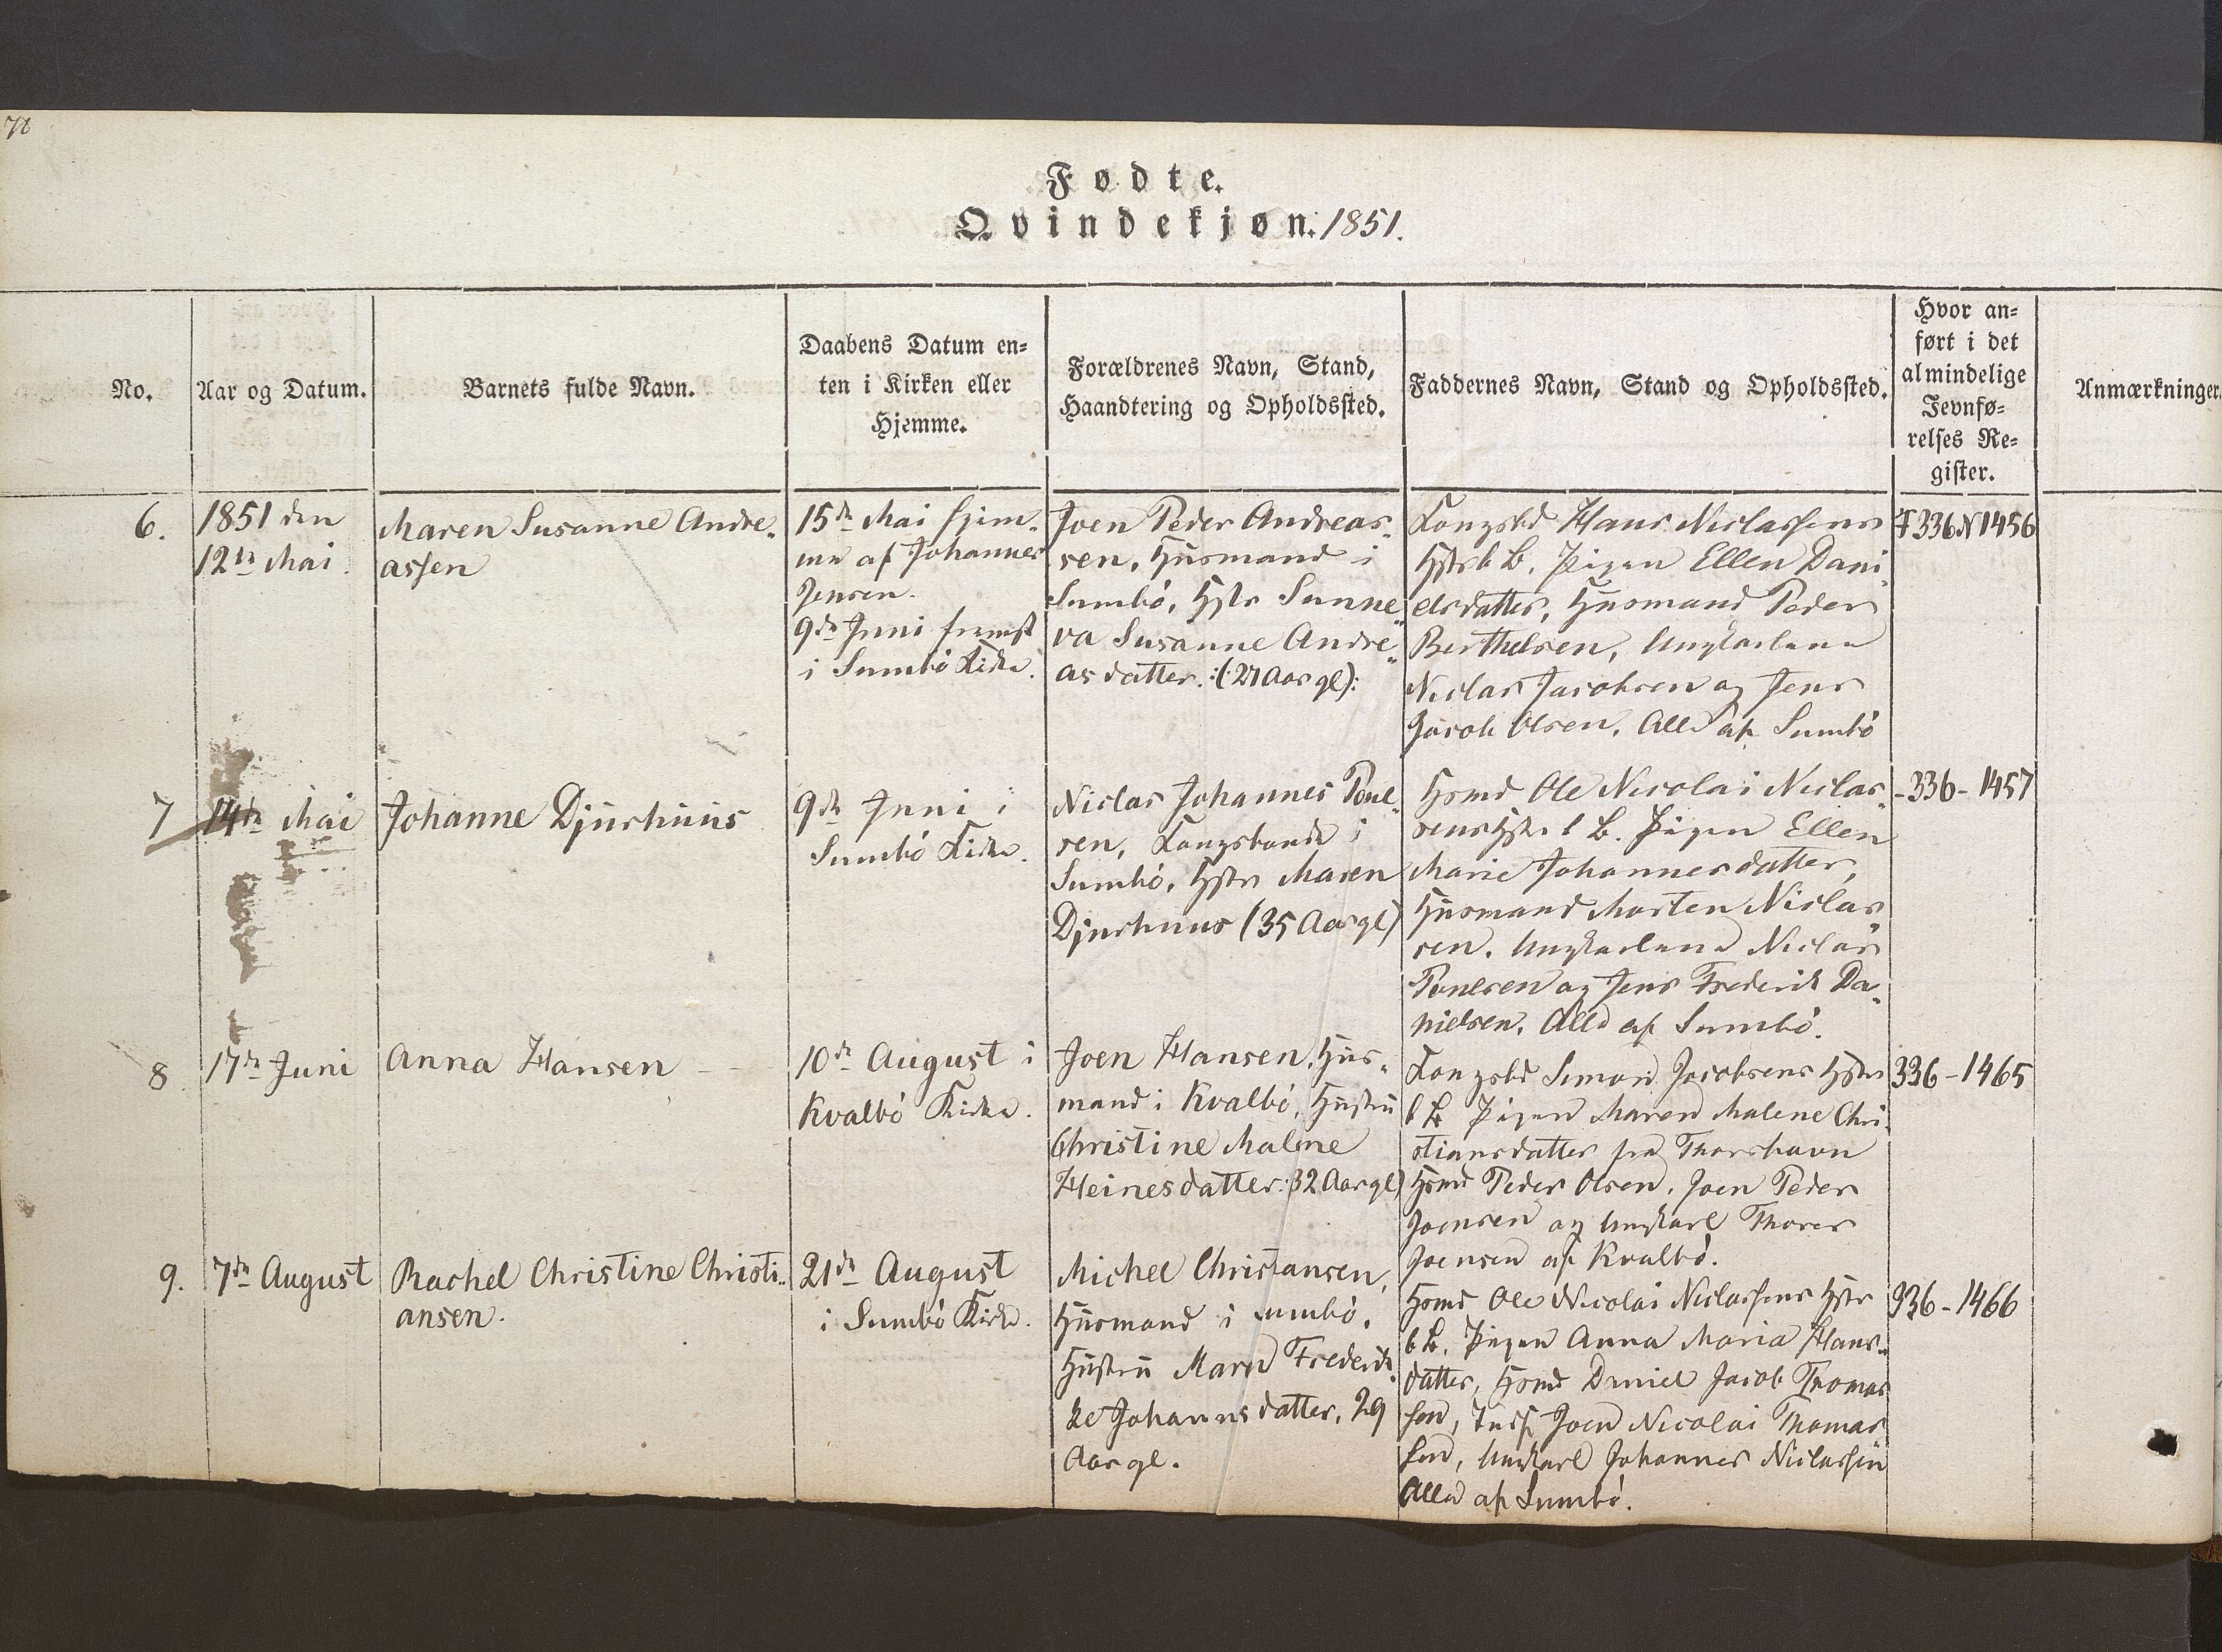 Fødte.
Qvindekjøn. 1851.
No.
Aar og Datum.
Barnets fulde Navn.
Daabens Datum en-
ten i Kirken eller
Hjemme.
Forældrenes Navn, Stand,
Haandtering og Opholdssted.
Faddernes Navn, Stand og Opholdssted.
Hvor an-
ført i det
almindelige
Jevnfø-
relses Re-
gister.
Anmærkninger.
6.
1851 den
12te Mai
Maren Susanne Andre-
assen
15de Mai hjem-
me af Johannes
Jensen.
9de Juni fremst
i Sumbö Kirke.
Joen Peder Andreas-
sen, Huusmand i
Sumbö, Hstr Sunne-
va Susanne Andre-
asdatter. :(27 Aar gl):
Kongsbd Hans Niclassens
Hstr b B. Pigen Ellen Dani-
elsdatter, Huusmand Peder
Berthelsen, Ungkarlene
Niclas Jacobsen og Jens
Jacob Olsen. Alle af Sumbö
F 336 N 1456
7
14de Mai
Johanne Djurhuus
9de Juni i
Sumbö Kirke.
Niclas Johannes Poul-
sen, Kongsbonde i
Sumbö, Hstr Maren
Djurhuus (35 Aar gl)
Hsmd Ole Nicolai Niclas-
sens Hstr b B. Pigen Ellen
Marie Johannesdatter,
Huusmand Morten Niclas-
sen. Ungkarlene Niclas
Poulsen og Jens Frederik Da-
nielsen. Alle af Sumbö.
- 336 - 1457
8
17de Juni
Anna Hansen
10de August i
Kvalbö Kirke.
Joen Hansen, Huus-
mand i Kvalbö, Hustru
Christine Malene
Heinesdatter: 32 Aar gl)
Kongsbd Simon Jacobsens Hstr
b B Pigen Maren Malene Chri-
stiansdatter fra Thorshavn
Hsmd Peder Olsen. Joen Peder
Joensen og Ungkarl Thorer
Joensen af Kvalbö.
336 - 1465
9.
7de August
Rachel Christine Christi-
ansen.
21de August
i Sumbö Kirke.
Michel Christansen,
Huusmand i Sumbö.
Hustru Maren Frederik-
ke Johannsdatter, 29
Aar gl.
Hsmd Ole Nicolai Niclassens Hstr
b B. Pigen Anna Maria Hans-
datter, Hsmd Daniel Jacob Thomas
sen, Joen Nicolai Thomas
sen, Ungkarl Johannes Niclassen
Alle af Sumbö.
336 - 1466